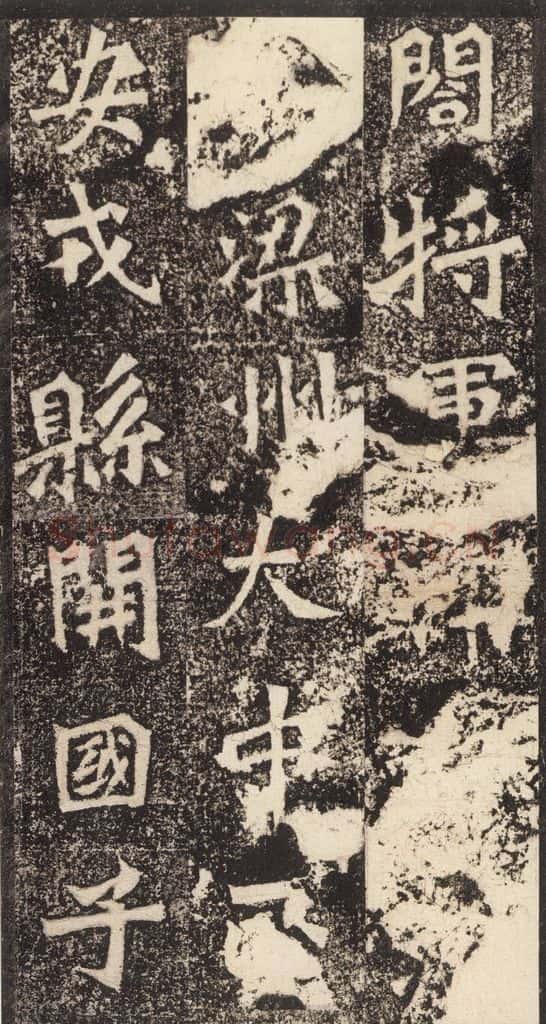 閤將軍
梁州大中正
安戎縣開國子
Shufawang.cn